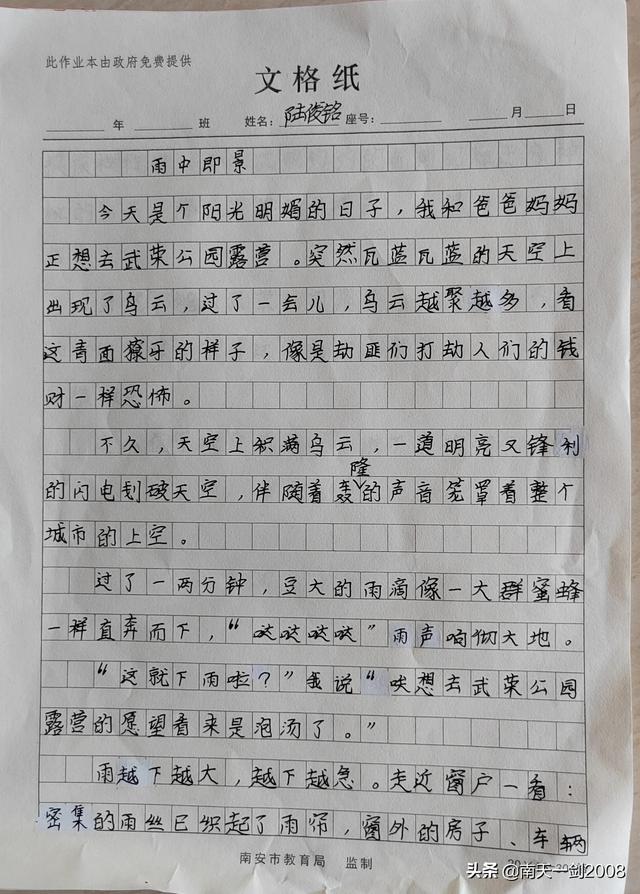 此作业本由政府免费提供
文格纸
年 班 姓名：陆俊铭 座号： 月 日
雨中即景
今天是个阳光明媚的日子，我和爸爸妈妈
正想去武荣公园露营。突然瓦蓝瓦蓝的天空上
出现了乌云，过了一会儿，乌云越聚越多，看
这青面獠牙的样子，像是劫匪们打劫人们的钱
财一样恐怖。
不久，天空上积满乌云，一道明亮又锋利
的闪电划破天空，伴随着轰隆的声音笼罩着整个
城市的上空。
过了一两分钟，豆大的雨滴像一大群蜜蜂
一样直奔而下，“哒哒哒哒”雨声响彻大地。
“这就下雨啦？”我说“唉想去武荣公园
露营的愿望看来是泡汤了。”
雨越下越大，越下越急。走近窗户一看：
密集的雨丝已织起了雨帘，窗外的房子、车辆
南安市教育局 监制
头条 @南天一剑2008